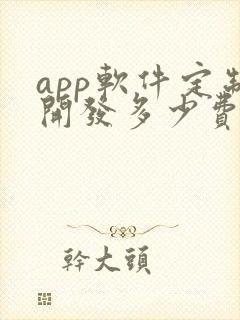 app軟件定制
開發多少費
幹大頭